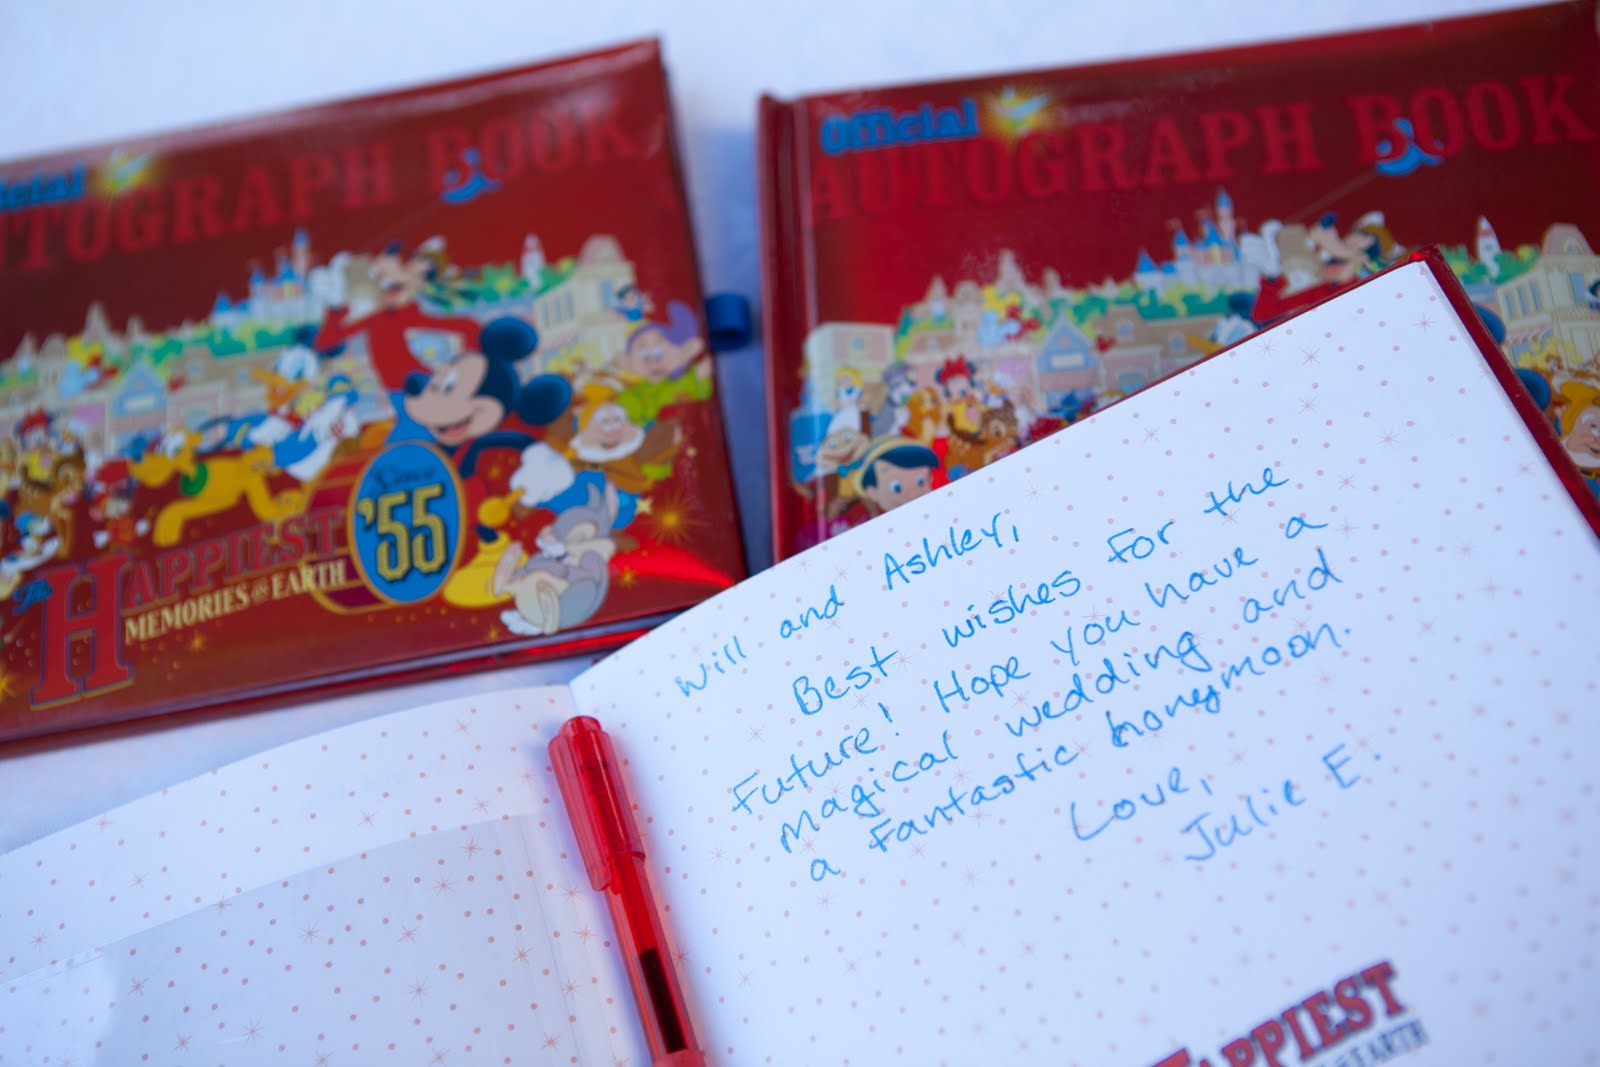 Official
AUTOGRAPH BOOK
Since
'55
The HAPPIEST
MEMORIES ON EARTH
Official
AUTOGRAPH BOOK
Will and Ashley,
Best wishes for the
future! Hope you have a
magical wedding and
a fantastic honeymoon.
Love,
Julie E.
HAPPIEST
EARTH